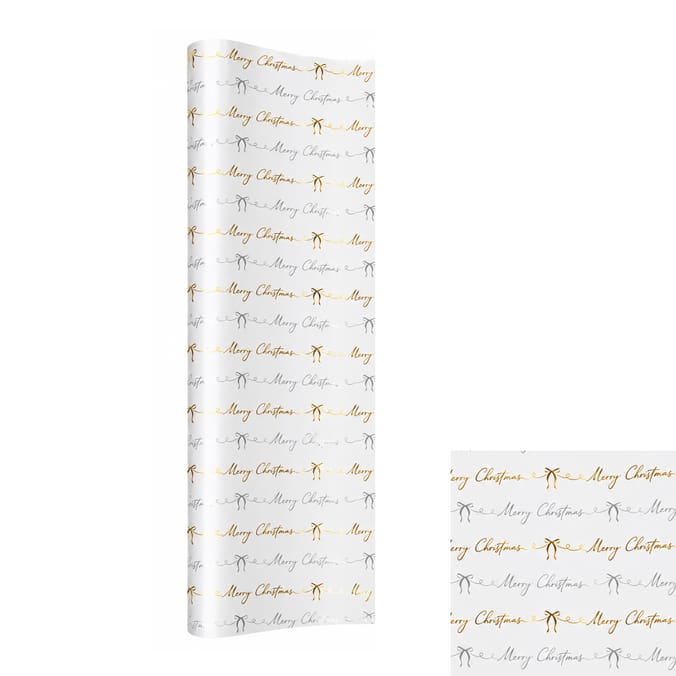 Merry Christmas Merry
Merry Christmas
Merry Christmas Merry
Merry Christmas
Merry Christmas Merry
Merry Christmas
Merry Christmas Merry
Merry Christmas
Merry Christmas Merry
Merry Christmas
Merry Christmas Merry
Merry Christmas
Merry Christmas Merry
Merry Christmas
Merry Christmas Merry
Merry Christmas
Merry Christmas Merry
Merry Christmas
Merry Christmas Merry
Merry Christmas
Merry Christmas Merry Christmas
Merry Christmas Merry
Merry Christmas Merry Christmas
Merry Christmas Merry
Merry Christmas Merry Christmas
Merry Christmas Merry